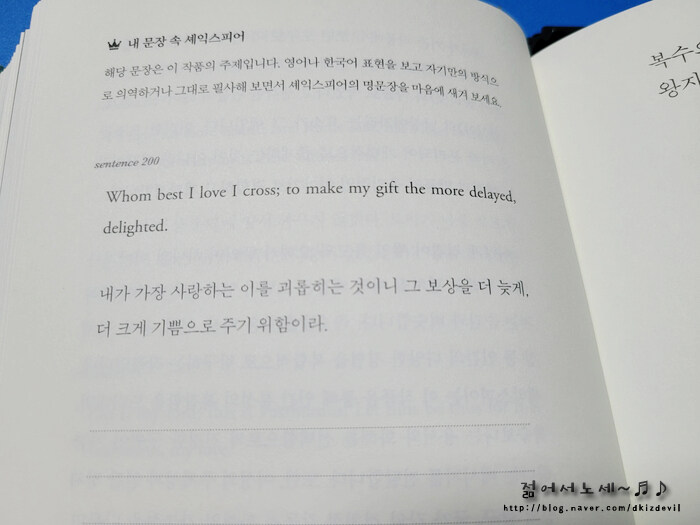 내 문장 속 셰익스피어
해당 문장은 이 작품의 주제입니다. 영어나 한국어 표현을 보고 자기만의 방식으
로 의역하거나 그대로 필사해 보면서 셰익스피어의 명문장을 마음에 새겨 보세요.
sentence 200
Whom best I love I cross; to make my gift the more delayed,
delighted.
내가 가장 사랑하는 이를 괴롭히는 것이니 그 보상을 더 늦게,
더 크게 기쁨으로 주기 위함이라.
왕자
젊어서노세~♬♪
http://blog.naver.com/dkizdevil